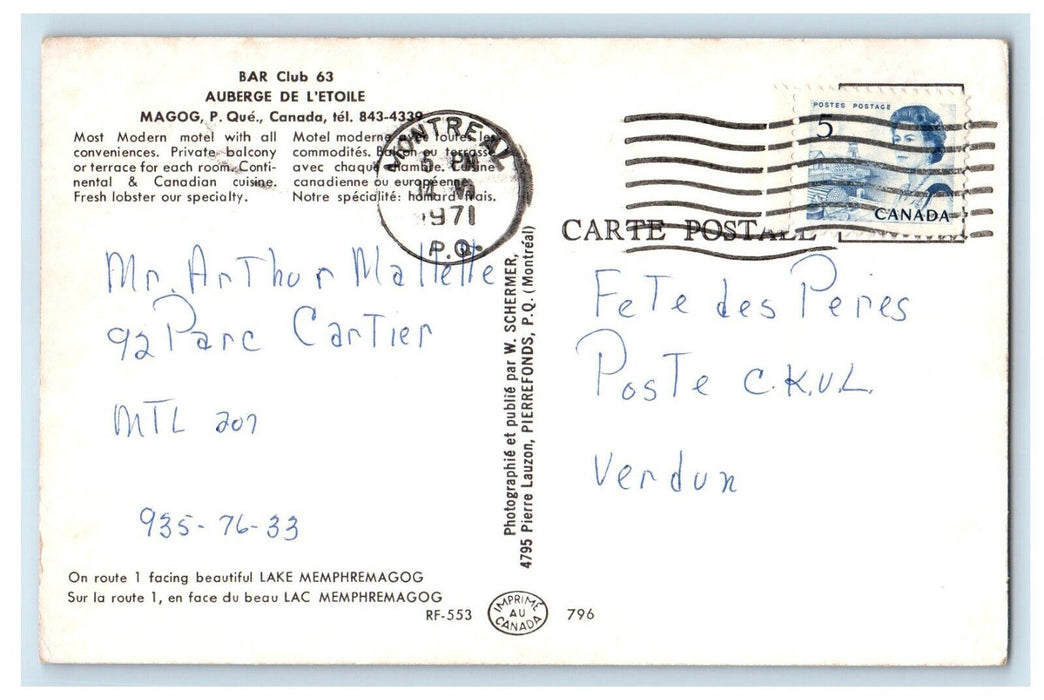 BAR Club 63
AUBERGE DE L'ETOILE
MAGOG, P. Qué., Canada, tél. 843-4339
Most Modern motel with all
conveniences. Private balcony
or terrace for each room. Conti-
nental & Canadian cuisine.
Fresh lobster our specialty.
Motel moderne avec toutes les
commodités. Balcon ou terrasse
avec chaque chambre. Cuisine
canadienne ou européenne.
Notre spécialité: homard frais.
MONTREAL
5 PM
14 VI
1971
P.Q.
POSTES POSTAGE
5
CANADA
CARTE POSTALE
Mr. Arthur Mallette
92 Parc Cartier
MTL 207
935-76-33
Photographié et publié par W. SCHERMER,
4795 Pierre Lauzon, PIERREFONDS, P.Q. (Montréal)
Fete des Peres
Poste C.K.V.L.
Verdun
On route 1 facing beautiful LAKE MEMPHREMAGOG
Sur la route 1, en face du beau LAC MEMPHREMAGOG
RF-553
IMPRIMÉ
AU
CANADA
796